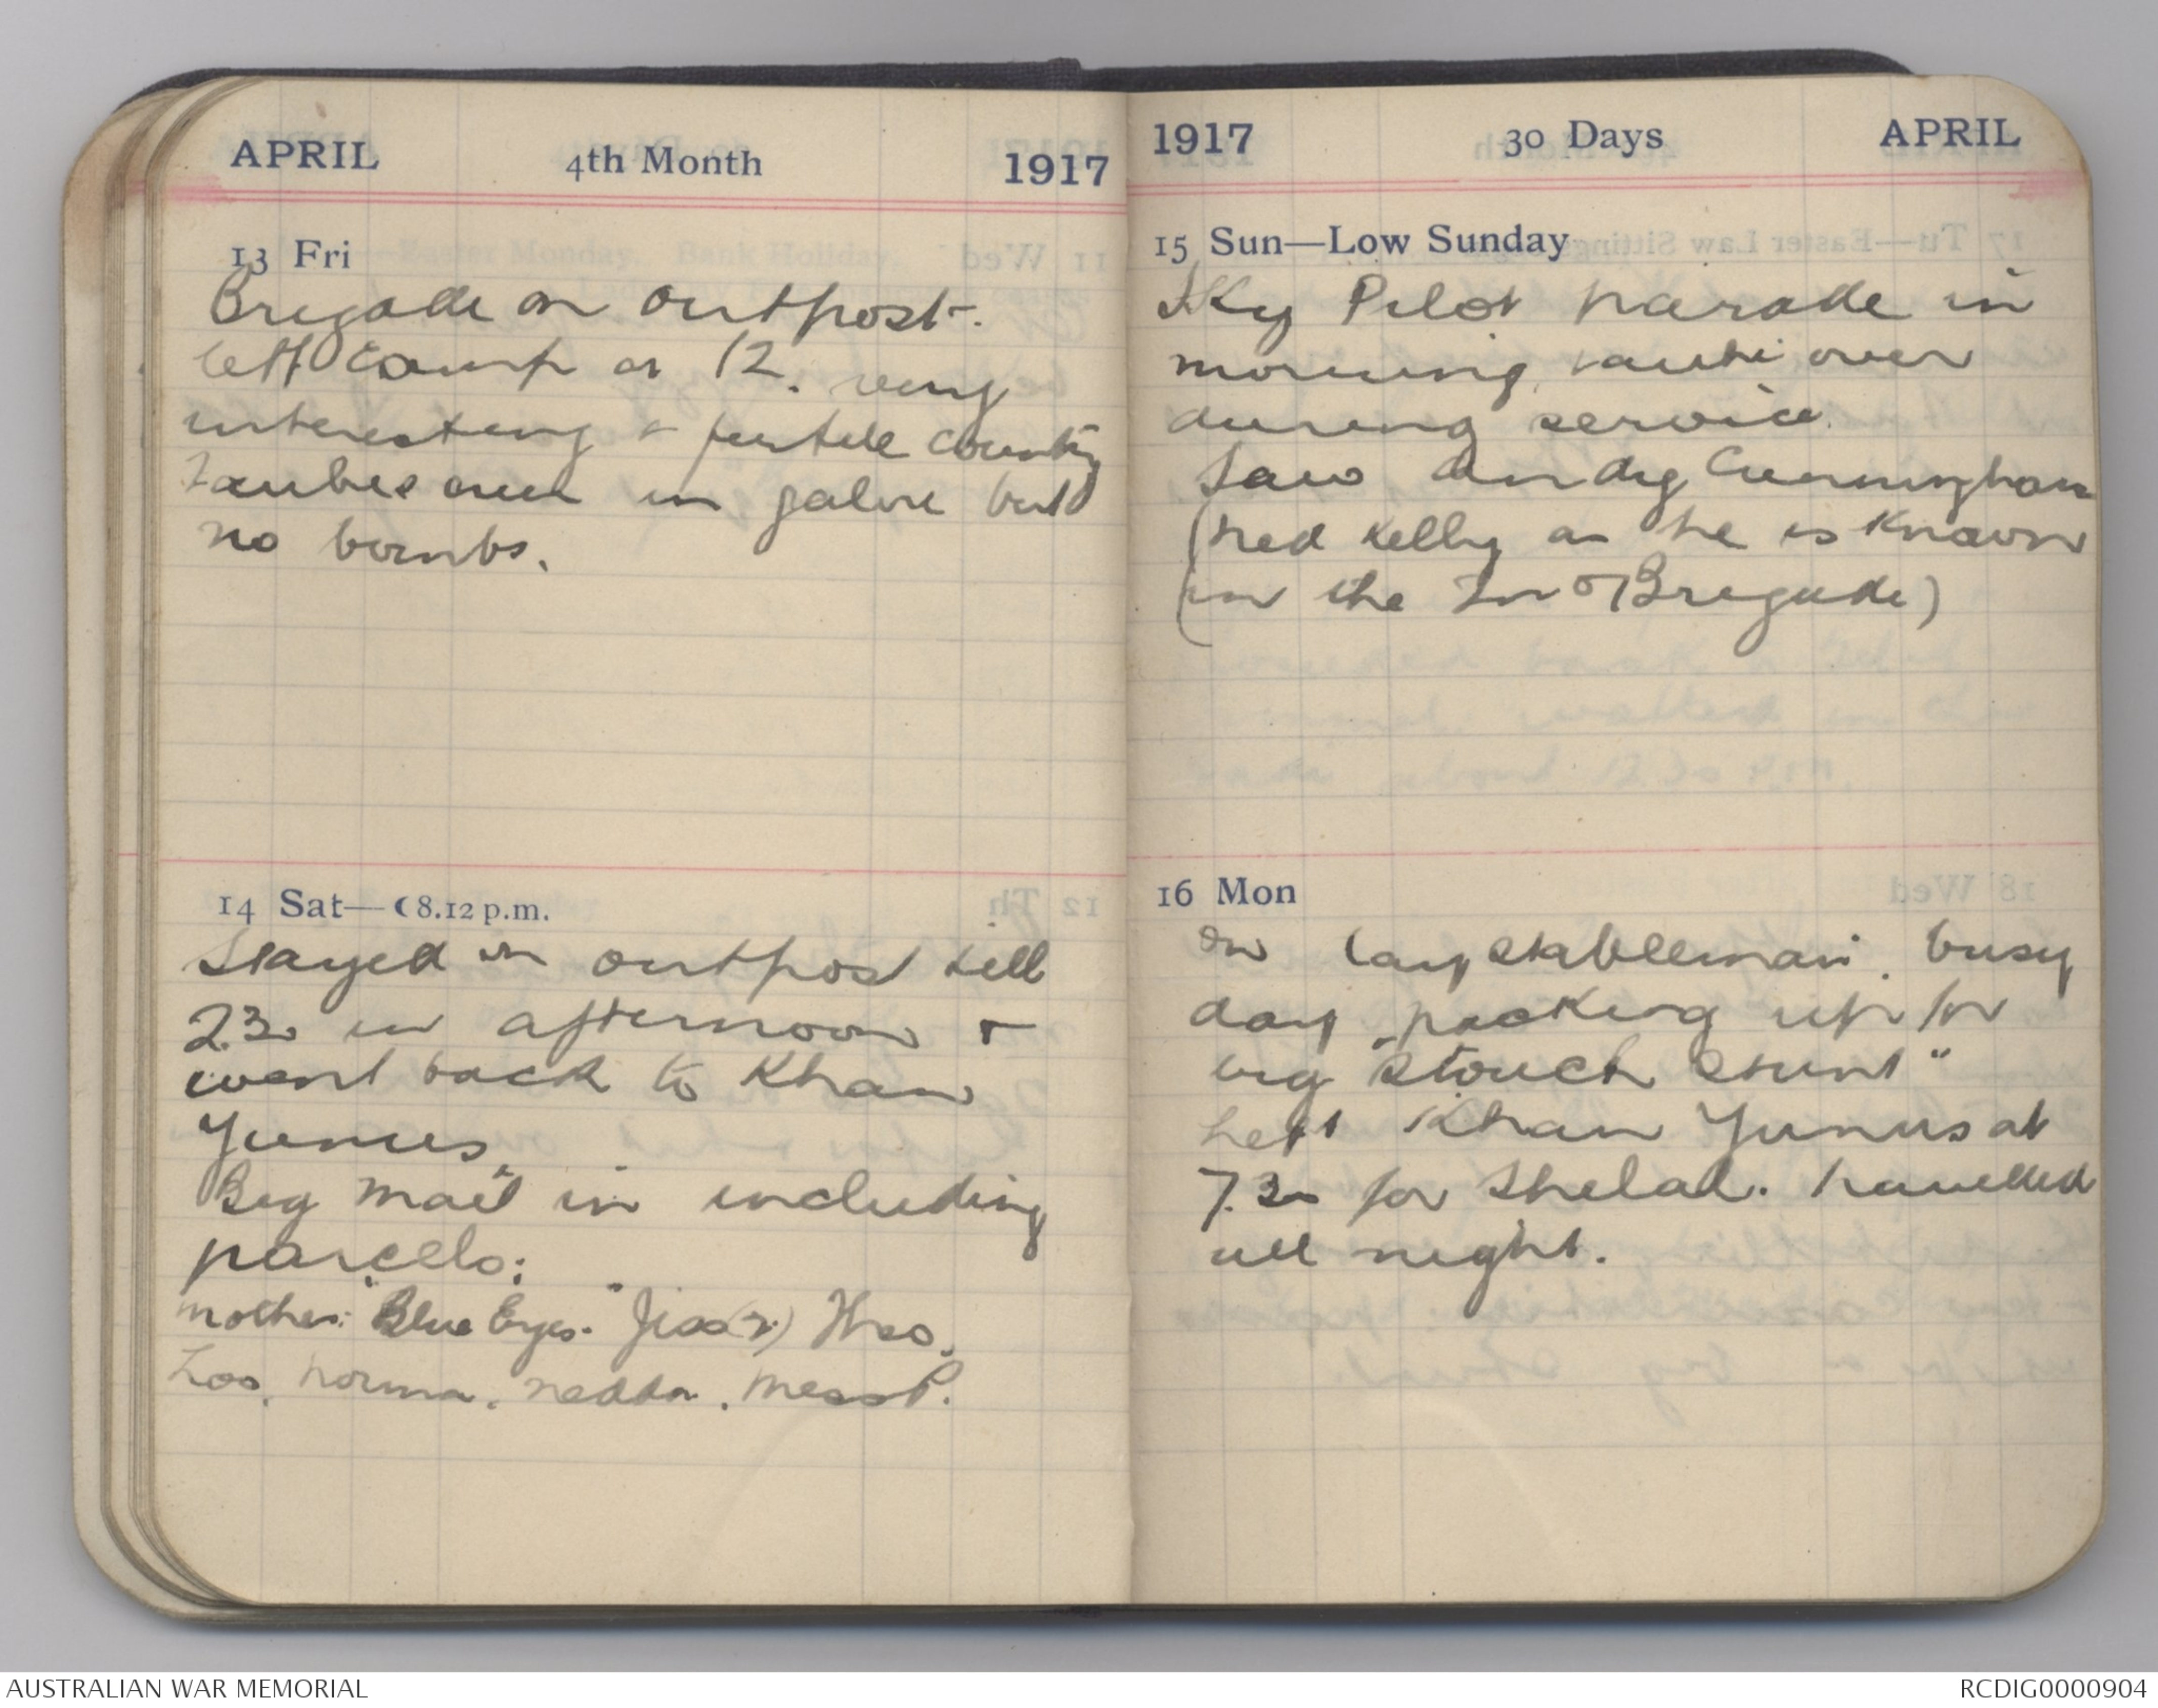 APRIL 4th Month 1917
13 Fri
Brigade on outpost.
left camp at 12. very
interesting & fertile country
Taubes over in galore but
no bombs.
14 Sat—☾8.12 p.m.
Stayed on outpost till
2.30 in afternoon &
went back to Khan
Yunus.
Big mail in including
parcels:
Mother: "Blue Eyes." Jess(2)
Los, Norma, Nedda,
1917 30 Days APRIL
15 Sun—Low Sunday
Sky Pilot parade in
morning, taube over
during service.
Saw Andy Cunningham
(Ned Kelly as he is known
in the Brigade)
16 Mon
On lay stableman. busy
day packing up for
big "stouch stunt"
Left Khan Yunus at
7.30 for Shelal. travelled
all night.
AUSTRALIAN WAR MEMORIAL
RCDIG0000904